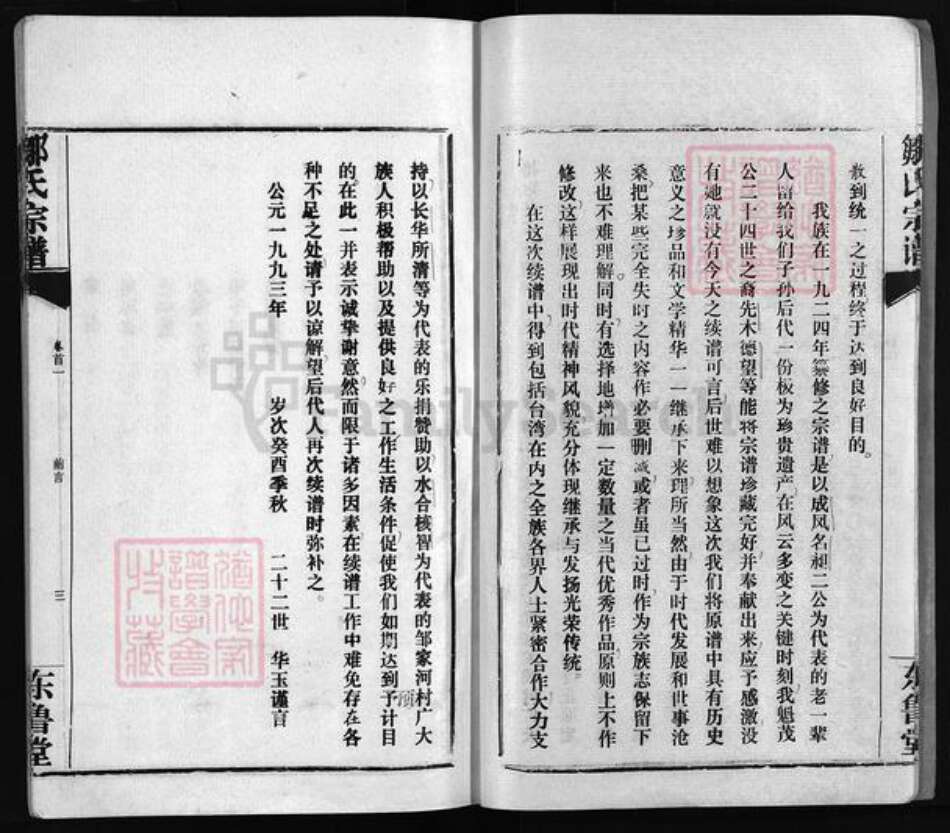 邹氏宗谱
东鲁堂
教到统一之过程终于达到良好目的。
我族在一九二四年纂修之宗谱是以成凤名昶二公为代表的老一辈
人留给我们子孙后代一份极为珍贵遗产在风云多变之关键时刻我魁茂
公二十四世之裔先木德望等能将宗谱珍藏完好并奉献出来应予感激没
有她就没有今天之续谱可言后世难以想象这次我们将原谱中具有历史
意义之珍品和文学精华一一继承下来理所当然由于时代发展和世事沧
桑把某些完全失时之内容作必要删减或者虽已过时作为宗族志保留下
来也不难理解。同时有选择地增加一定数量之当代优秀作品原则上不作
修改这样展现出时代精神风貌充分体现继承与发扬光荣传统。
在这次续谱中得到包括台湾在内之全族各界人士紧密合作大力支
持以长华所清等为代表的乐捐赞助以水合核智为代表的邹家河村广大
族人积极帮助以及提供良好之工作生活条件促使我们如期达到予计目
预
的。在此一并表示诚挚谢意。然而限于诸多因素在续谱工作中难免存在各
种不足之处请予以谅解望后代人再次续谱时弥补之。
公元一九九三年 岁次癸酉季秋 二十二世 华玉谨言
邹氏宗谱
卷首一 前言 三
东鲁堂
FamilySearch